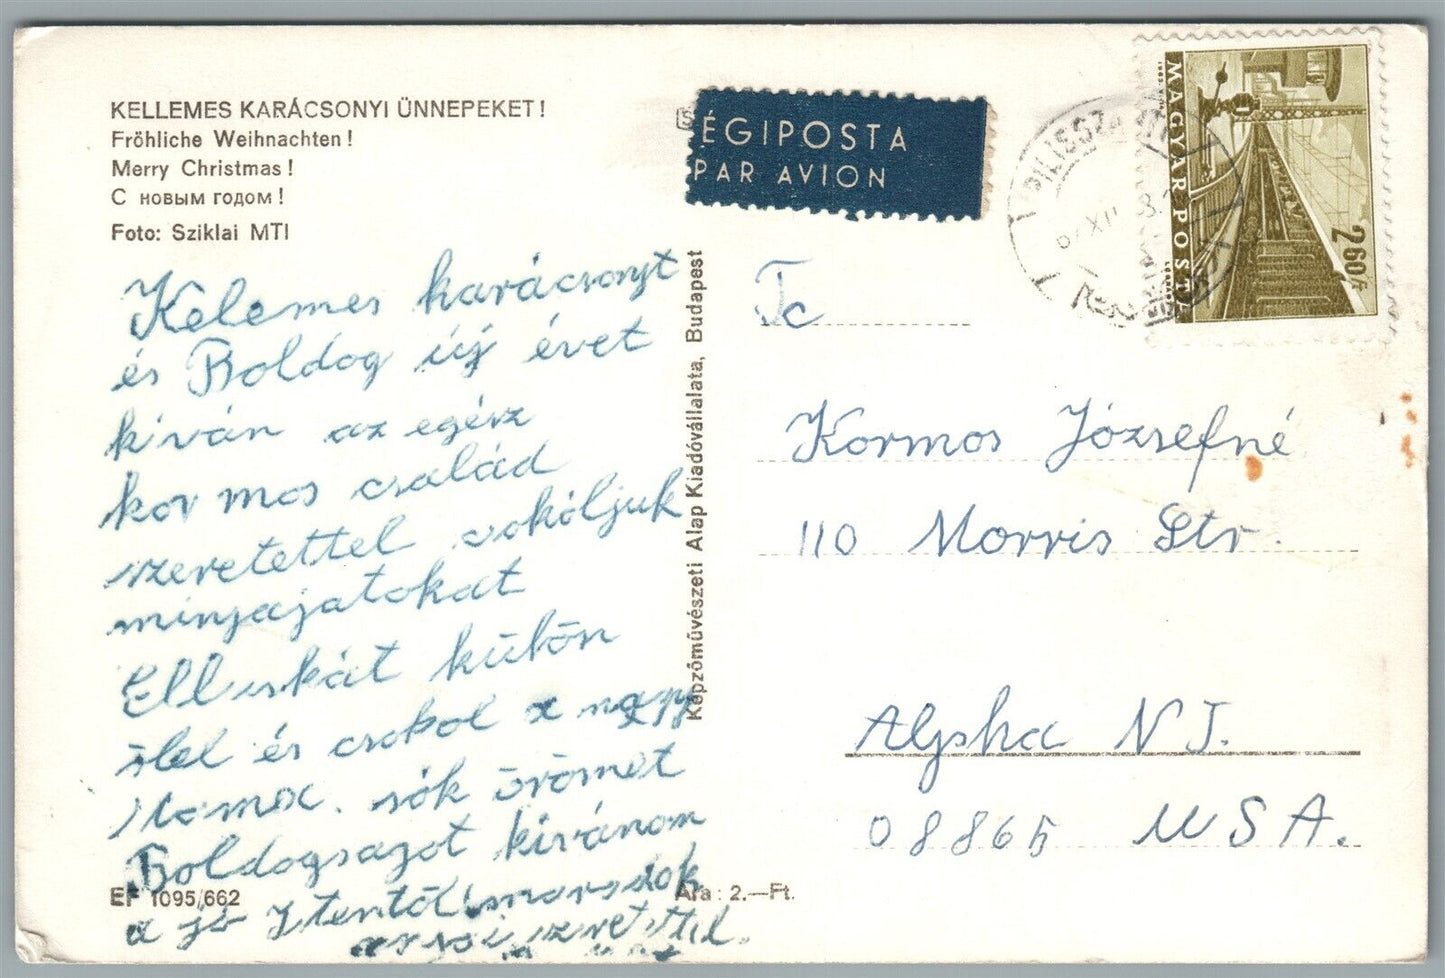 KELLEMES KARÁCSONYI ÜNNEPEKET!
Fröhliche Weihnachten!
Merry Christmas!
С новым годом!
Foto: Sziklai MTI
LÉGIPOSTA
PAR AVION
MAGYAR POSTA
2.60 Ft
PILISSZÁNTÓ
67 XII
Kelemes karácsonyt
és Boldog újj évet
kíván az egész
kormos család
szeretettel csokóljuk
minjajatokat
Elluskát külön
ölel és csokol a nagy
Mama. sók örömet
Boldogsagot kivánom
a jó Istentöl maradok
szeretettel.
EF 1095/662
Ára: 2.—Ft.
Képzőművészeti Alap Kiadóvállalata, Budapest
To
Kormos Józsefné
110 Morris Str.
Alpha N J.
08865 U S A.